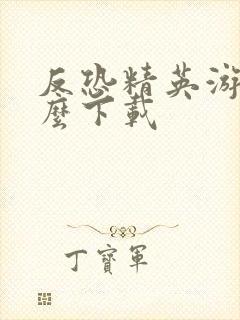 反恐精英游
麼下載
丁寶軍